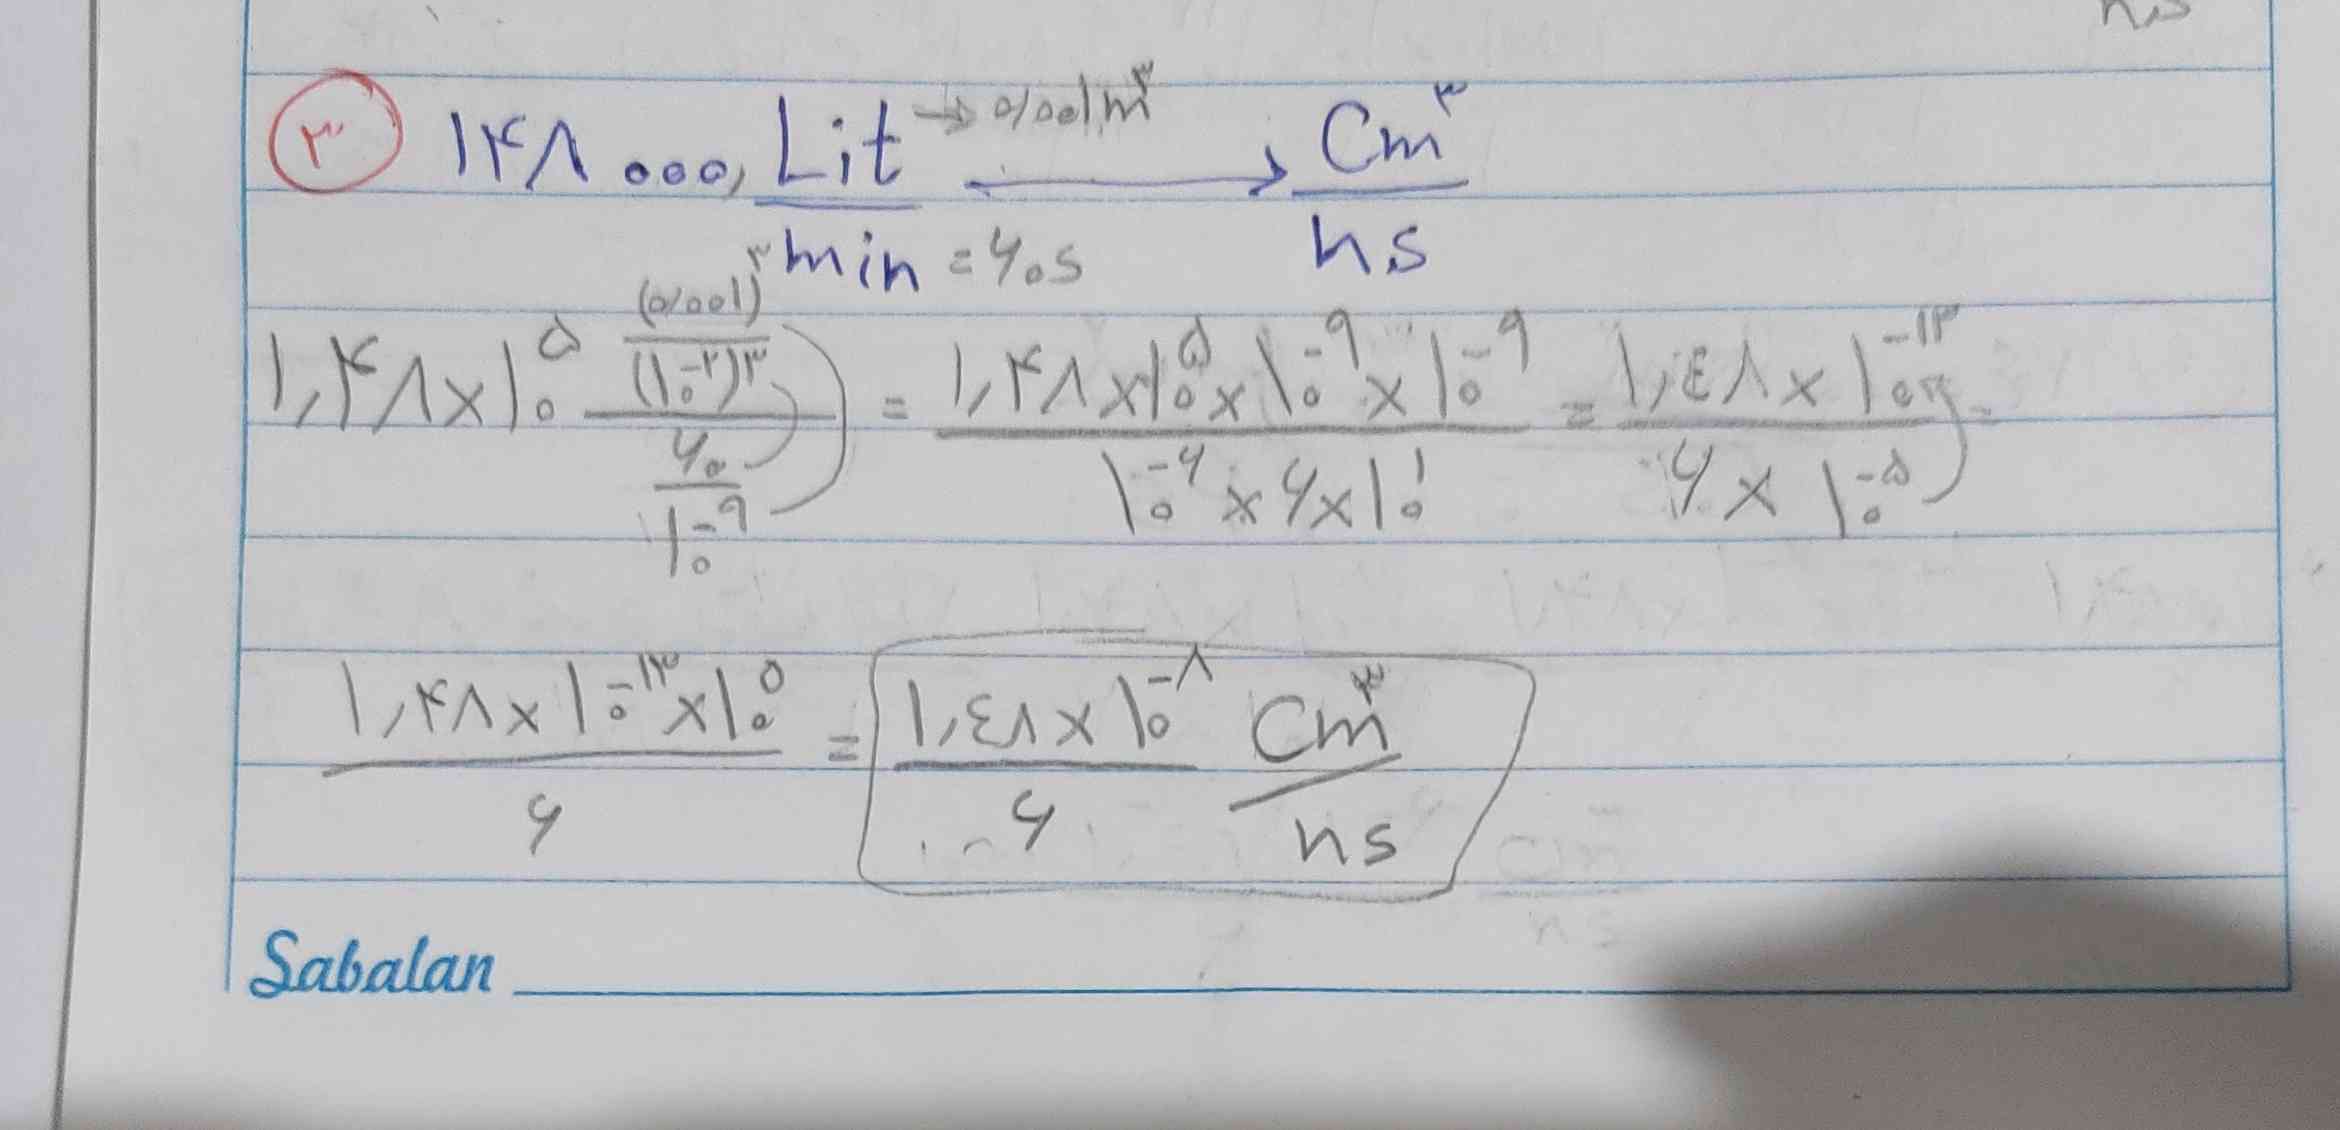 ns
۳ ۱۴۸۰۰۰, Lit → ۰/۰۰۱m³ → Cm³
min = ۶۰s ns
۱,۴۸×۱۰^۵ ((۰/۰۰۱)^۳ / (۱۰^-۲)^۳) / (۶۰ / ۱۰^-۹) = (۱,۴۸×۱۰^۵×۱۰^-۹×۱۰^-۹) / (۱۰^-۶×۶×۱۰^۱) = (۱,٤۸×۱۰^-۱۳) / (۶×۱۰^-۵) =
(۱,۴۸×۱۰^-۱۳×۱۰^۵) / ۶ = (۱,٤۸×۱۰^-۸) / ۶ Cm³/ns
Sabalan